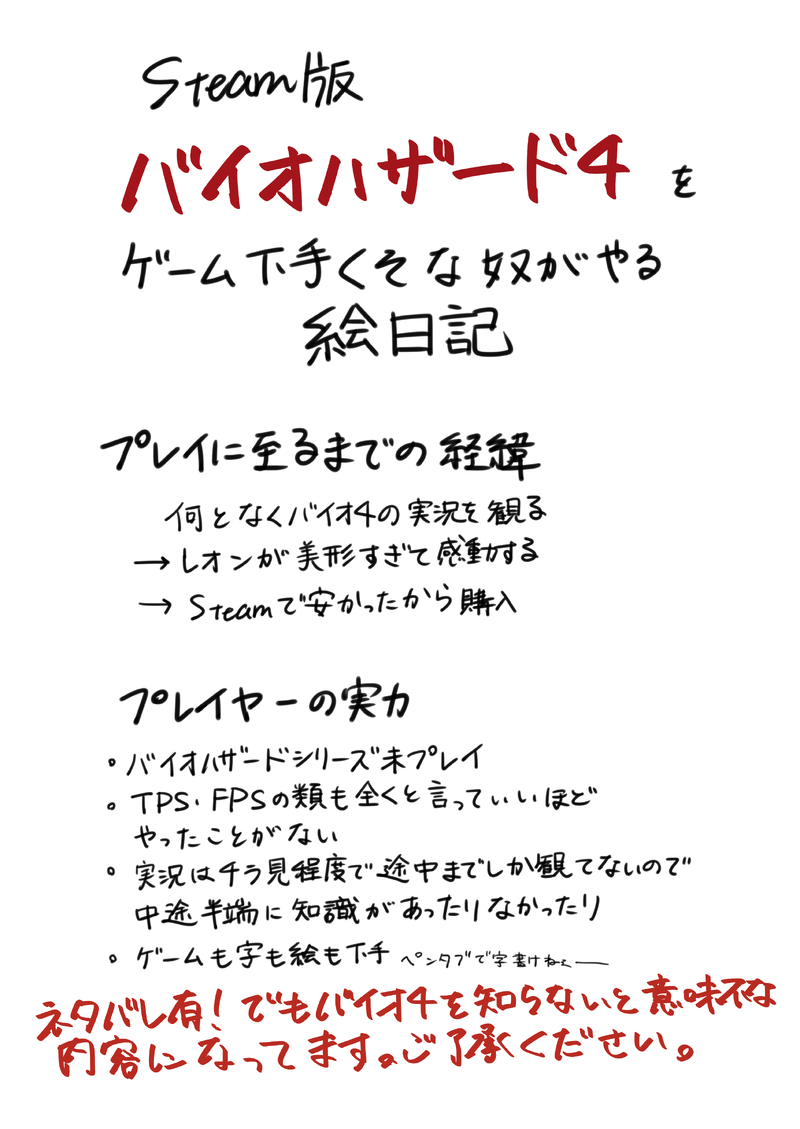 Steam版
バイオハザード4を
ゲーム下手くそな奴がやる
絵日記
プレイに至るまでの経緯
何となくバイオ4の実況を観る
→レオンが美形すぎて感動する
→Steamで安かったから購入
プレイヤーの実力
・バイオハザードシリーズ未プレイ
・TPS・FPSの類も全くと言っていいほど
やったことがない
・実況はチラ見程度で途中までしか観てないので
中途半端に知識があったりなかったり
・ゲームも字も絵も下手 ペンタブで字書けねぇー
ネタバレ有!でもバイオ4を知らないと意味不な
内容になってます。ご了承ください。